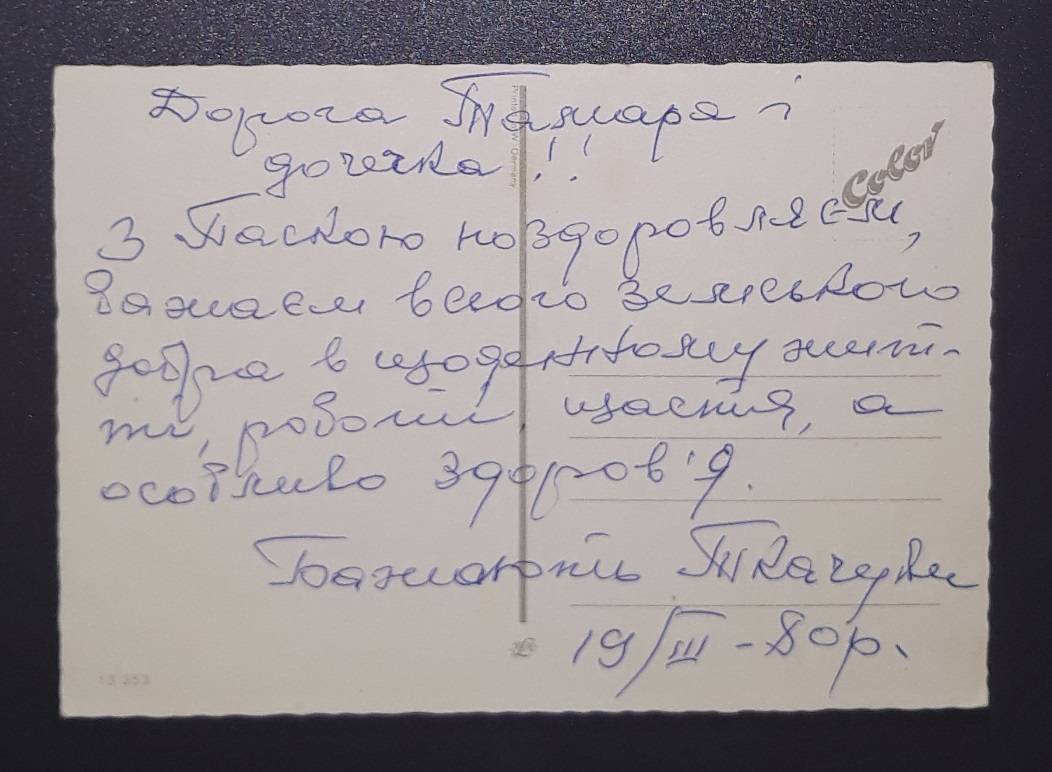 Дорога Тамара і
дочечка!!
З Паскою поздоровляєм,
бажаєм всього земського
добра в щоденному жит-
ті, роботі, щастя, а
особливо здоров'я.
Бажають Ткачуки
19/III - 80р.
Color
Printed in W. Germany
13 353